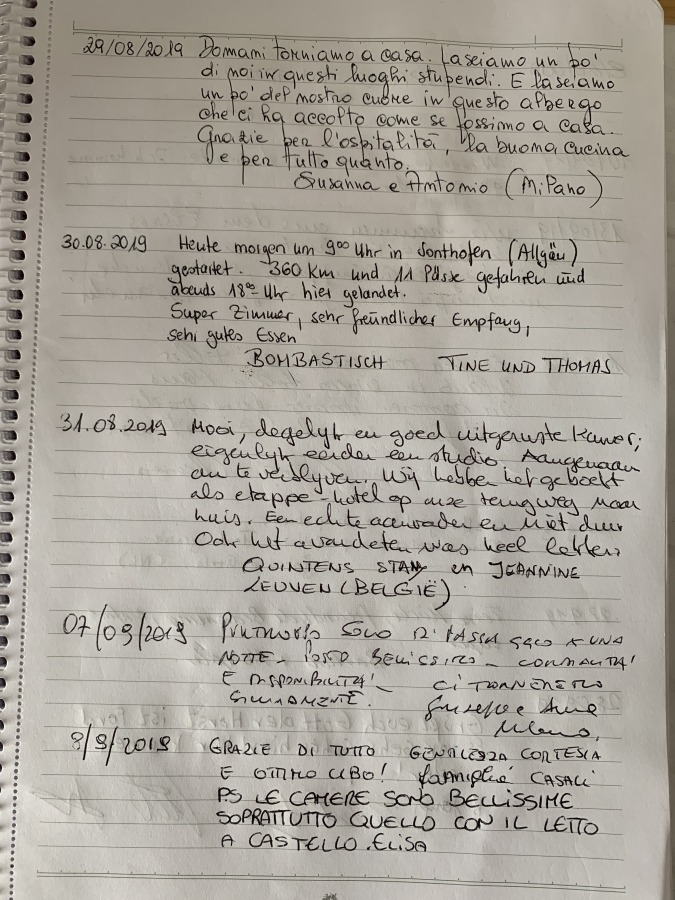 29/08/2019 Domani torniamo a casa. Lasciamo un po'
di noi in questi luoghi stupendi. E lasciamo
un po' del nostro cuore in questo albergo
che ci ha accolto come se fossimo a casa.
Grazie per l'ospitalità, la buona cucina
e per tutto quanto.
Susanna e Antonio (Milano)
30.08.2019 Heute morgen um 9⁰⁰ Uhr in Sonthofen (Allgäu)
gestartet. 360 Km und 11 Pässe gefahren und
abends 18⁰⁰ Uhr hier gelandet.
Super Zimmer, sehr freundlicher Empfang,
sehr gutes Essen
BOMBASTISCH TINE UND THOMAS
31.08.2019 Mooi, degelijk en goed uitgeruste kamer;
eigenlijk eerder een studio. Aangenaam
om te verblijven. Wij hebben het geboekt
als etappe-hotel op onze terugweg naar
huis. Een echte aanrader en niet duur
Ook het avondeten was heel lekker.
QUINTENS STAN en JEANNINE
LEUVEN (BELGIË)
07/09/2019 SOLO DI PASSAGGIO X UNA
NOTTE - POSTO BELLISSIMO -
E DISPONIBILITA' - CI TORNEREMO
SICURAMENTE.
Milano,
8/9/2019 GRAZIE DI TUTTO GENTILEZZA CORTESIA
E OTTIMO CIBO! famiglia CASALI
PS LE CAMERE SONO BELLISSIME
SOPRATTUTTO QUELLO CON IL LETTO
A CASTELLO. ELISA